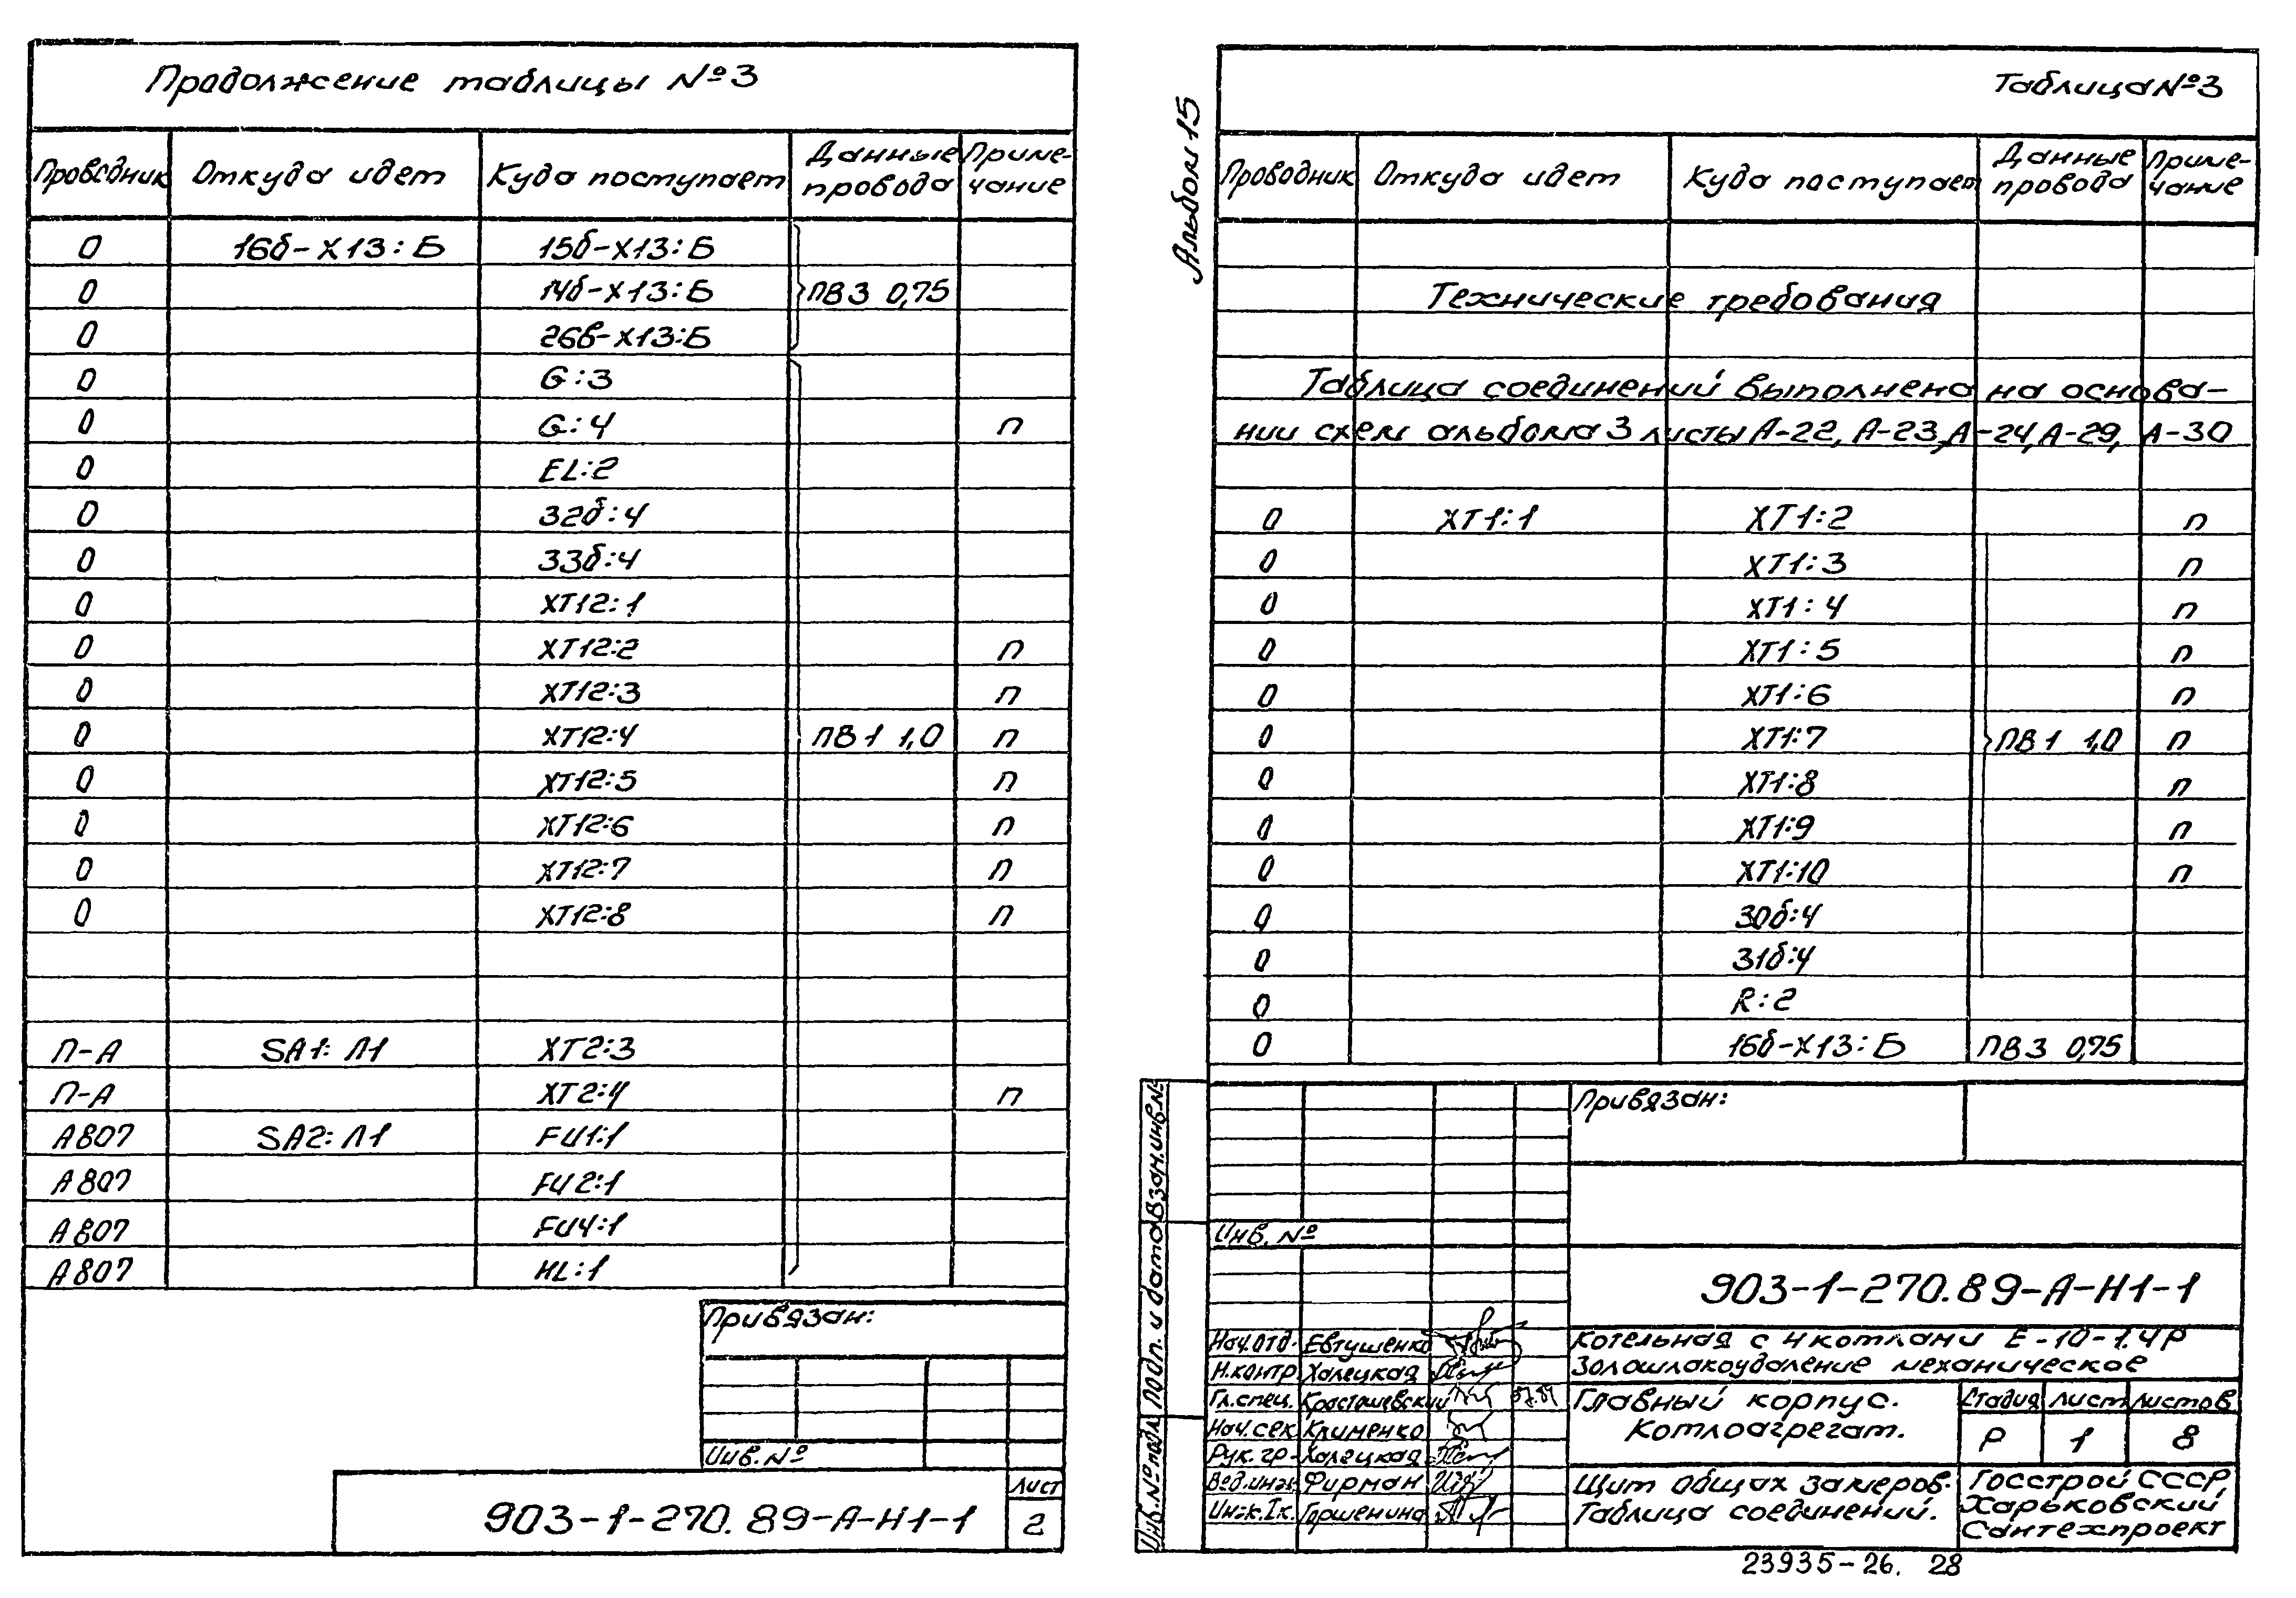 Продолжение таблицы №3
Проводник Откуда идет Куда поступает Данные провода Приме-чание
0 16б-Х13:Б 15б-Х13:Б
0 14б-Х13:Б ПВ3 0,75
0 26в-Х13:Б
0 G:3
0 G:4 п
0 EL:2
0 32б:4
0 33б:4
0 ХТ12:1
0 ХТ12:2 п
0 ХТ12:3 п
0 ХТ12:4 ПВ1 1,0 п
0 ХТ12:5 п
0 ХТ12:6 п
0 ХТ12:7 п
0 ХТ12:8 п
П-А SA1:Л1 ХТ2:3
П-А ХТ2:4 п
А807 SA2:Л1 FU1:1
А807 FU2:1
А807 FU4:1
А807 HL:1
Привязан:
Инв.№
903-1-270.89-А-Н1-1
Лист
2
Альбом 15
Таблица №3
Проводник Откуда идет Куда поступает Данные провода Приме-чание
Технические требования
Таблица соединений выполнена на основа-
нии схем альбома 3 листы А-22, А-23, А-24, А-29, А-30
0 ХТ1:1 ХТ1:2 п
0 ХТ1:3 п
0 ХТ1:4 п
0 ХТ1:5 п
0 ХТ1:6 п
0 ХТ1:7 ПВ1 1,0 п
0 ХТ1:8 п
0 ХТ1:9 п
0 ХТ1:10 п
0 30б:4
0 31б:4
0 R:2
0 16б-Х13:Б ПВ3 0,75
Инв.№ подл. Подп. и дата Взам.инв.№
Привязан:
Инв.№
903-1-270.89-А-Н1-1
Нач.отд. Евтушенко
Н.контр. Халецкая
Гл.спец.
Нач.сек. Клименко
Рук.гр. Халецкая
Вед.инж. Фирман
Инж.Iк. Горшенина
Котельная с 4 котлами Е-10-1.4Р
Золошлакоудаление механическое
Главный корпус.
Котлоагрегат.
Стадия Лист Листов
Р 1 8
Щит общих замеров.
Таблица соединений.
Госстрой СССР,
Харьковский
Сантехпроект
23935-26. 28